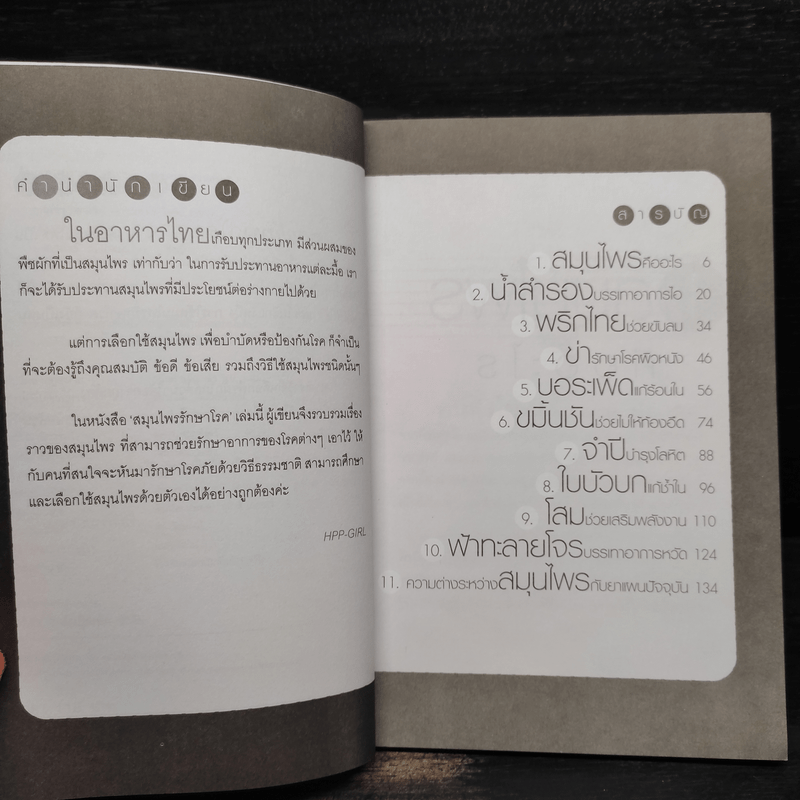 คำนำนักเขียน
ในอาหารไทยเกือบทุกประเภท มีส่วนผสมของ
พืชผักที่เป็นสมุนไพร เท่ากับว่า ในการรับประทานอาหารแต่ละมื้อ เรา
ก็จะได้รับประทานสมุนไพรที่มีประโยชน์ต่อร่างกายไปด้วย
แต่การเลือกใช้สมุนไพร เพื่อบำบัดหรือป้องกันโรค ก็จำเป็น
ที่จะต้องรู้ถึงคุณสมบัติ ข้อดี ข้อเสีย รวมถึงวิธีใช้สมุนไพรชนิดนั้นๆ
ในหนังสือ ‘สมุนไพรรักษาโรค’ เล่มนี้ ผู้เขียนจึงรวบรวมเรื่อง
ราวของสมุนไพร ที่สามารถช่วยรักษาอาการของโรคต่างๆ เอาไว้ ให้
กับคนที่สนใจจะหันมารักษาโรคภัยด้วยวิธีธรรมชาติ สามารถศึกษา
และเลือกใช้สมุนไพรด้วยตัวเองได้อย่างถูกต้องค่ะ
HPP-GIRL
สารบัญ
1. สมุนไพรคืออะไร 6
2. น้ำสำรองบรรเทาอาการไอ 20
3. พริกไทยช่วยขับลม 34
4. ข่ารักษาโรคผิวหนัง 46
5. บอระเพ็ดแก้ร้อนใน 56
6. ขมิ้นชันช่วยไม่ให้ท้องอืด 74
7. จำปีบำรุงโลหิต 88
8. ใบบัวบกแก้ช้ำใน 96
9. โสมช่วยเสริมพลังงาน 110
10. ฟ้าทะลายโจรบรรเทาอาการหวัด 124
11. ความต่างระหว่างสมุนไพรกับยาแผนปัจจุบัน 134